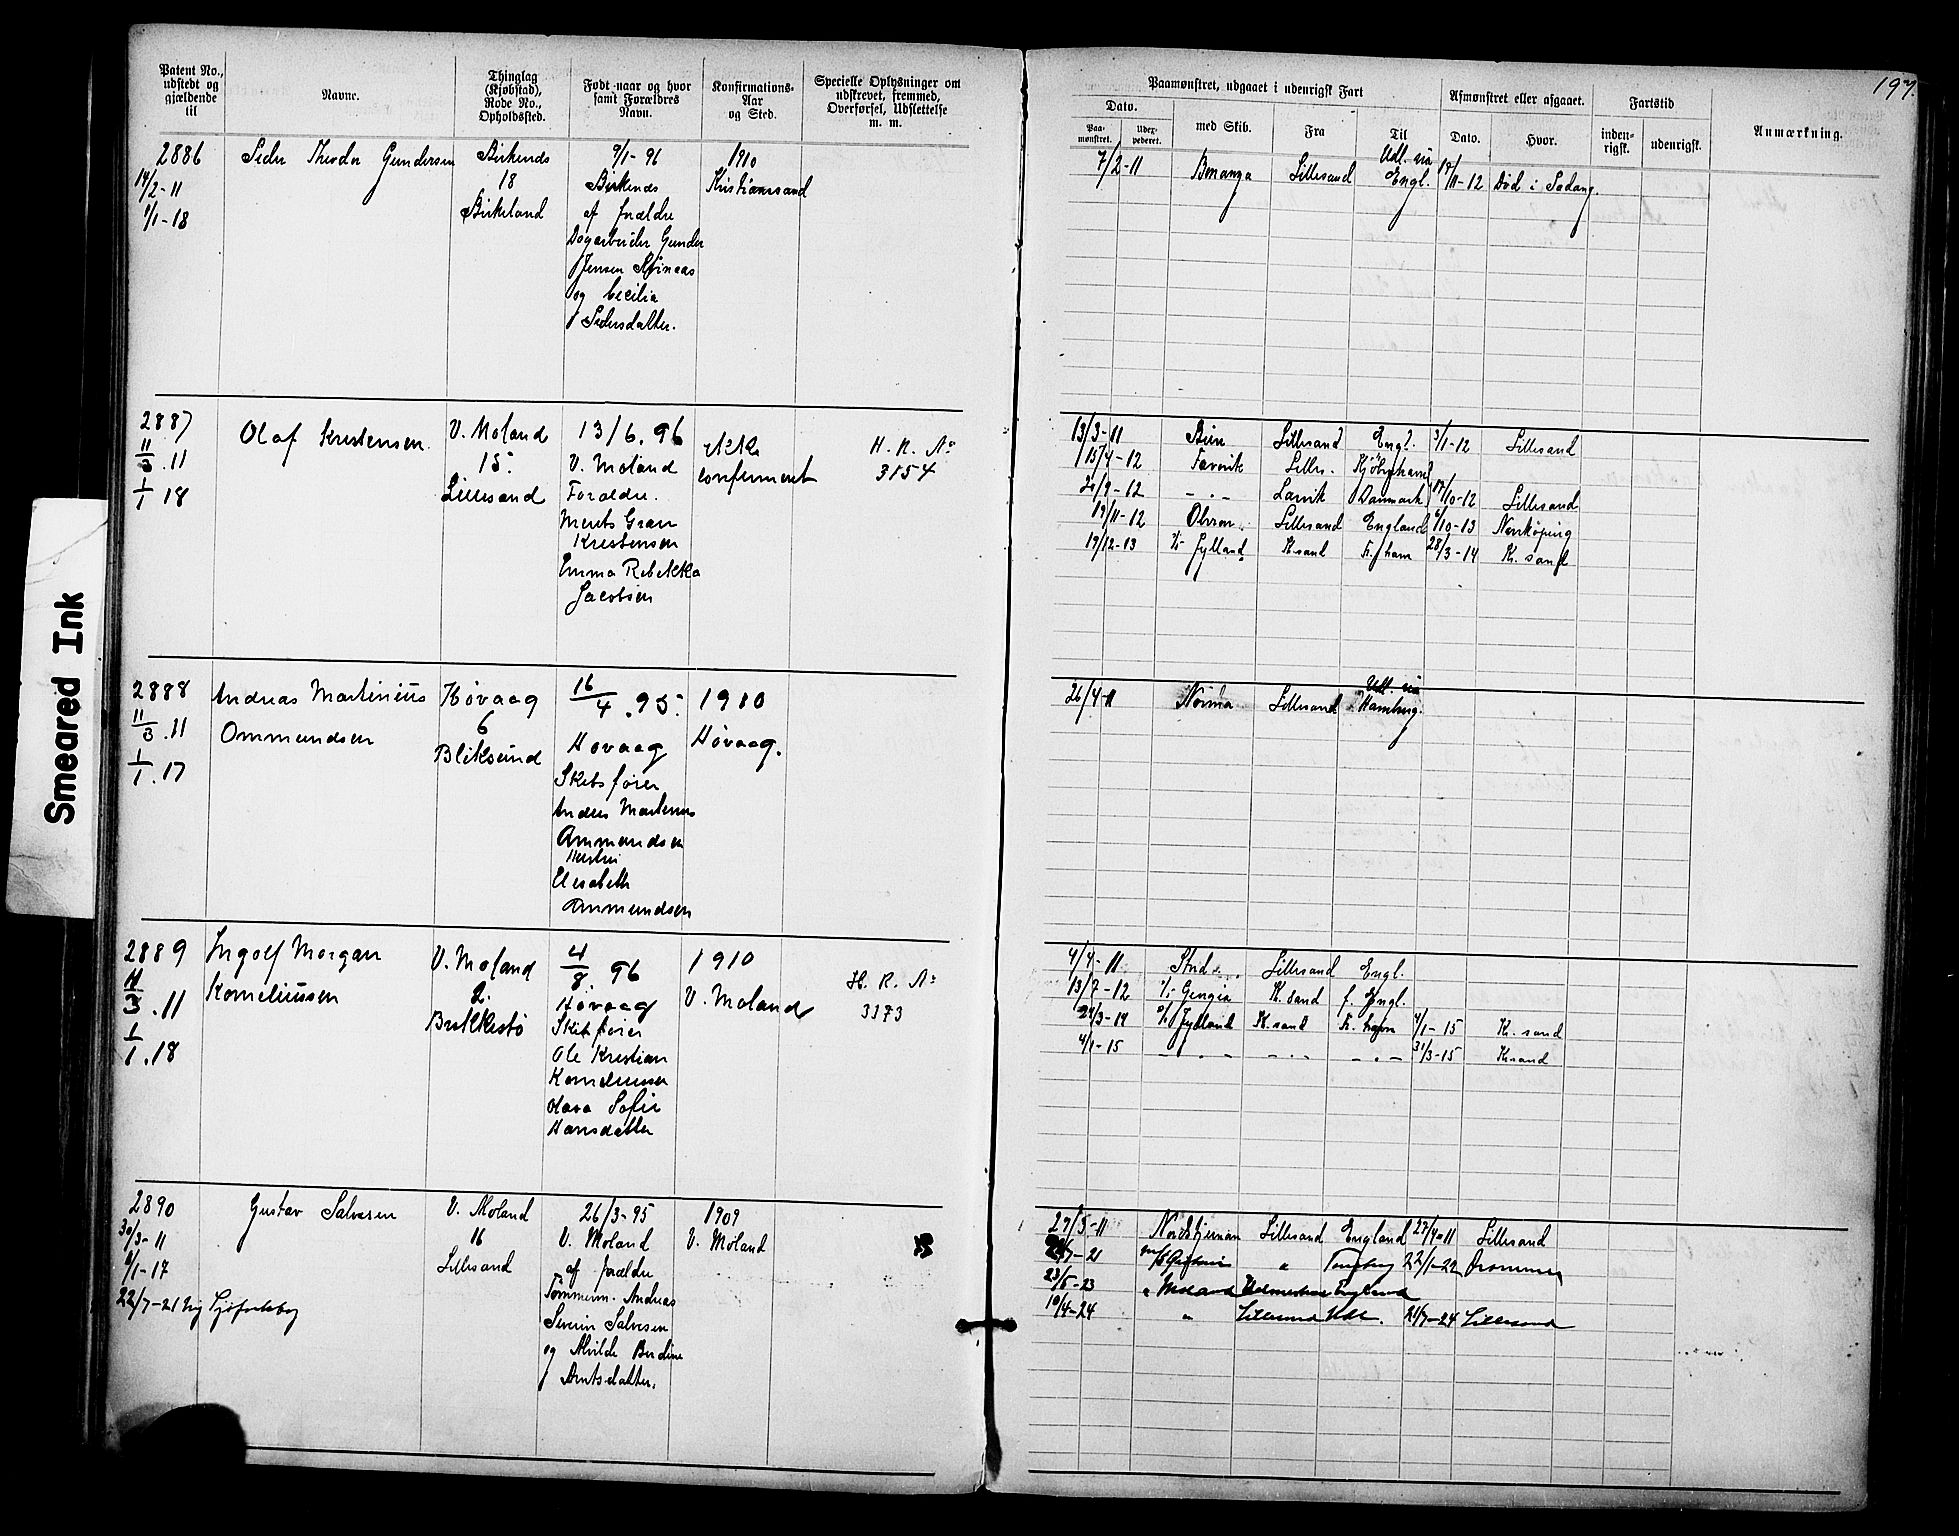 197.
Patent No., udstedt og gjældende til
Navne.
Thinglag (Kjøbstad), Rode No., Opholdssted.
Født naar og hvor samt Forældres Navn.
Konfirmations-Aar og Sted.
Specielle Oplysninger om udskrevet, fremmed, Overførsel, Udslettelse m. m.
Paamønstret, udgaaet i udenrigsk Fart
Dato.
Paa-mønstret.
Udex-pederet.
med Skib.
Fra
Til
Afmønstret eller afgaaet.
Dato.
Hvor.
Fartstid
inden-rigsk.
udenrigsk.
Anmærkning.
2886
14/2-11
1/1-18
Peder Theodor Gundersen
Birkenes
18
Birkeland
9/1-96
Birkenes
af forældre
Dagarbeider Gunder
Jensen
og Cecilie
Pedersdatter.
1910
Kristianssand
7/2-11 Bonanza Lillesand Udl. via Engl. 11-12 Død i
2887
11/3.11
1/1 18
Olaf Kristensen.
V. Moland
15.
Lillesand
13/6.96
V. Moland
Forældre.
Kristensen
Emma Rebekka
Jacobsen
ikke
confirmeret
H. R. No
3154
13/3-11 Lillesand Engl. 3/1-12 Lillesand
15/4-12 Favorit Lilles. Kjøbenhavn
2/9-12 -.- Larvik Danmark 17/10-12 Lillesand
19/11-12 Lillesand England 6/10-13 Norrköping
19/12-13 Jylland K.sand Fr.havn 28/3-14 K. sand
2888
11/3.11
1/1.17
Andreas Martinius
Ommundsen
Høvaag
6
Bliksund
16/4.95.
Høvaag
Skibsfører
Andreas Martinius
Ommundsen
Hustru
Elisabeth
Ommundsen
1910
Høvaag.
26/4-11 Norma Lillesand Udl. via Hamburg.
2889
11/3.11
1/1.18
Ingolf Morgan
Korneliussen
V. Moland
2.
Brekkestø
4/8.96
Høvaag
Skibsfører
Ole Kristian
Korneliussen
Olava Sofie
Hansdatter
1910
V. Moland
H. R. No
3173
4/4-11 Lillesand Engl.
13/7-12 K.sand f. Engl.
24/3-14 Jylland K.sand Fr. havn 4/1-15 K. sand
4/1-15 -.- -.- -.- 31/3-15 K.sand
2890
30/3-11
1/1-17
22/7-21 ny Sjøfartsbog
Gustav Salvesen
V. Moland
16
Lillesand
26/3-95
V. Moland
af forældre
Tømmerm. Andreas
Severin Salvesen
og Alvilde Berdine
Arntsdatter.
1909
V. Moland
29/3-11 Nordstjernen Lillesand England 27/9-11 Lillesand
7-21 " Tønsberg 22/1-22 Drammen
23/5-23 " Moland England
10/4-24 " Lillesand Udl. 21/7-24 Lillesand
Smeared Ink